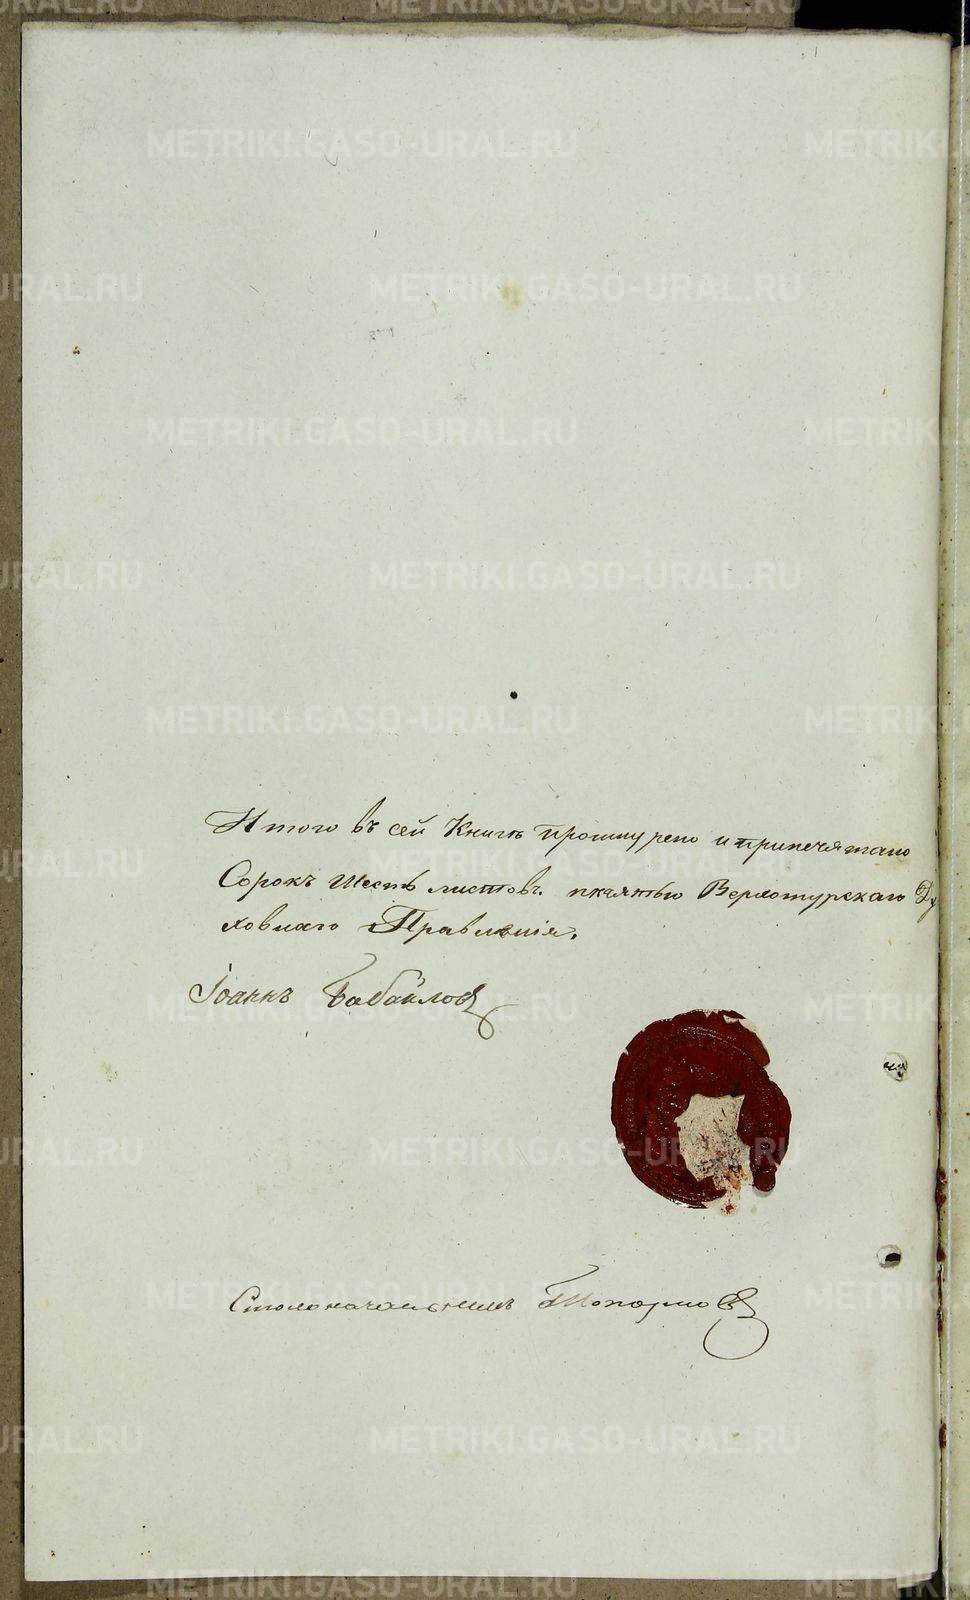 Итого въ сей Книгѣ прошнурено и припечатано
Сорокъ Шесть листовъ. печатью Верхотурскаго Ду
ховнаго Правленія.
Іоаннъ Бабайловъ
Столоначальникъ Топорковъ
METRIKI.GASO-URAL.RU